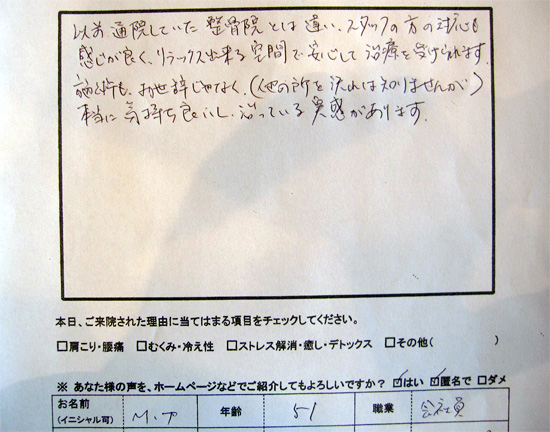 以前通院していた整骨院とは違い、スタッフの方の対応も
感じが良く、リラックス出来る空間で安心して治療を受けられます。
お世辞じゃなく、(他の所を
本当に気持ち良いし、治っている実感があります。
本日、ご来院された理由に当てはまる項目をチェックしてください。
□肩こり・腰痛 □むくみ・冷え性 □ストレス解消・癒し・デトックス □その他( )
※ あなた様の声を、ホームページなどでご紹介してもよろしいですか? ☑はい ☑匿名で □ダメ
お名前 M.T 年齢 51 職業 会社員
(イニシャル可)